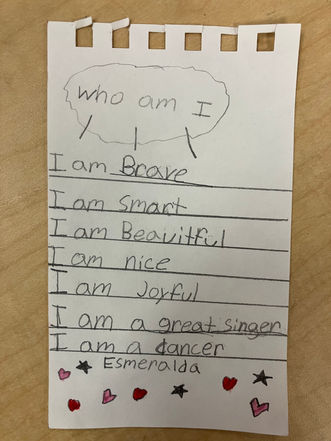 who am I
I am Brave
I am smart
I am Beavitful
I am nice
I am Joyful
I am a great singer
I am a dancer
Esmeralda